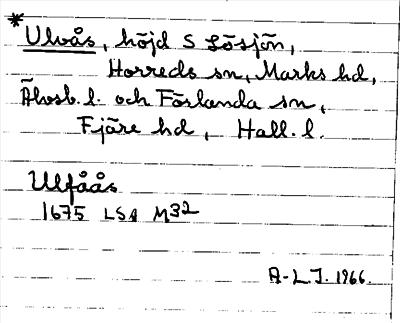 * Ulvås, höjd S Lösjön,
Horreds sn, Marks hd,
Älvsb. l. och Förlanda sn,
Fjäre hd, Hall. l.
Ulfåås
1675 LSA M32
A-L J. 1966.